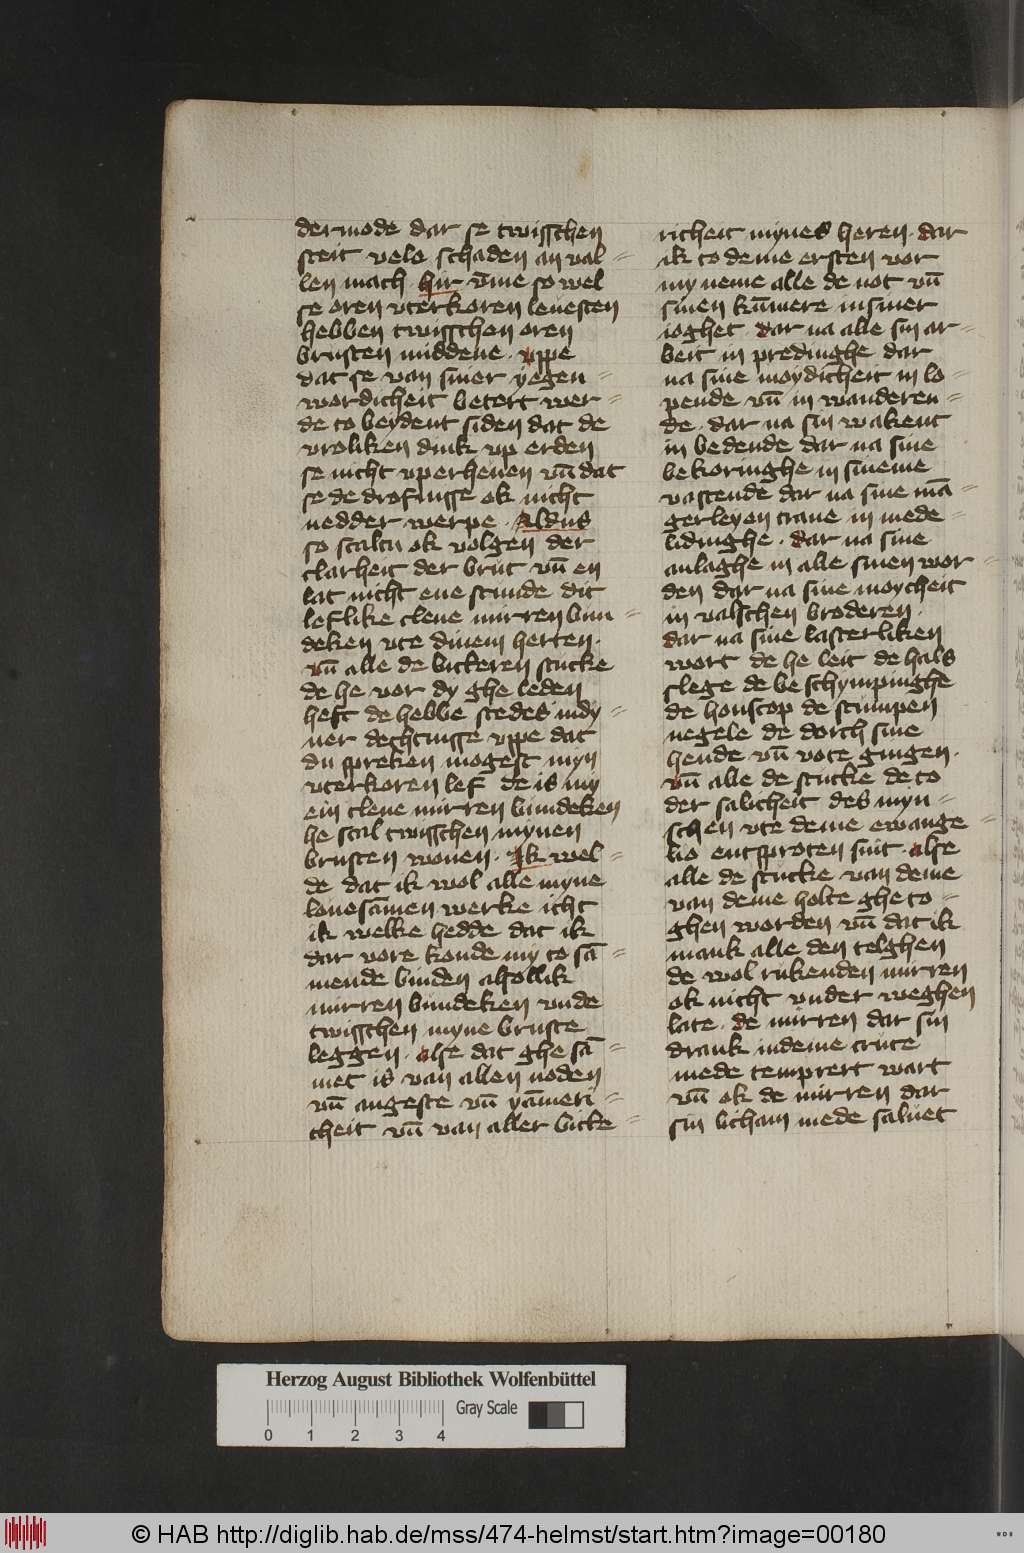 dermode dar se twisschen
steit vele schaden an val=
len mach hir vm̄e so wel
se oren vterkoren leuesten
hebben twisschen oren
brusten middene · vppe
dat se van siner yegen=
wordicheit betert wer=
de to beydent siden dat de
vroliken dink vp erden
se nicht vperheuen vn̄ dat
se de drofnisse ok nicht
nedder werpe · Aldus
so scaltu ok volgen der
clarheit der brut vn̄ en
lat nicht ene stunde dit
leflike clene mirren bun=
deken vte dinem herten ·
vn̄ alle de bickeren stucke
de he vor dy ghe leden
heft de hebbe stedes in dy=
ner dechtnisse vppe dat
du spreken mogest myn
vterkoren lef de is my
ein clene mirren bundeken
he scal twisschen mynen
brusten wonen · Ik wel=
de dat ik wol alle myne
louesāmen werke icht
ik welke hedde dat ik
dar vore konde my to sā=
mende binden alsollik
mirren bundeken vnde
twisschen myne bruste
leggen · alse dat ghe sā=
met is van allen noden
vn̄ angeste vn̄ yāmeri=
cheit vn̄ van aller bicke=
richeit mynes heren · dar
ik to deme ersten vor
my neme alle de not vn̄
sinen kum̄ere in siner
ioghet · dar na alle sin ar=
beit in predinghe dar
na sine moydicheit in lo=
pende vn̄ in wanderen=
de · dar na sin wakent
in bedende dar na sine
bekoringhe in sineme
vastende dar na sine mā=
gerleyen trane in mede=
lidinghe · dar na sine
anlaghe in alle sinen wor=
den dar na sine moycheit
in valschen broderen ·
dar na sine lasterliken
wort de he leit de hals
slege de beschympinghe
de honscop de stumpen
negele de dorch sine
hende vn̄ vote gingen ·
vn̄ alle de stucke de to
der salicheit des myn=
schen vte deme ewange=
lio entsproten sint · alse
alle de stucke van deme
van deme holte ghe to=
ghen worden vn̄ dat ik
mank alle den telghen
de wol rukenden mirren
ok nicht vnder weghen
late · de mirren dar sin
drank in deme cruce
mede temprert wart
vn̄ ok de mirren dar
sin licham mede saluet
Herzog August Bibliothek Wolfenbüttel
Gray Scale
0 1 2 3 4
© HAB http://diglib.hab.de/mss/474-helmst/start.htm?image=00180